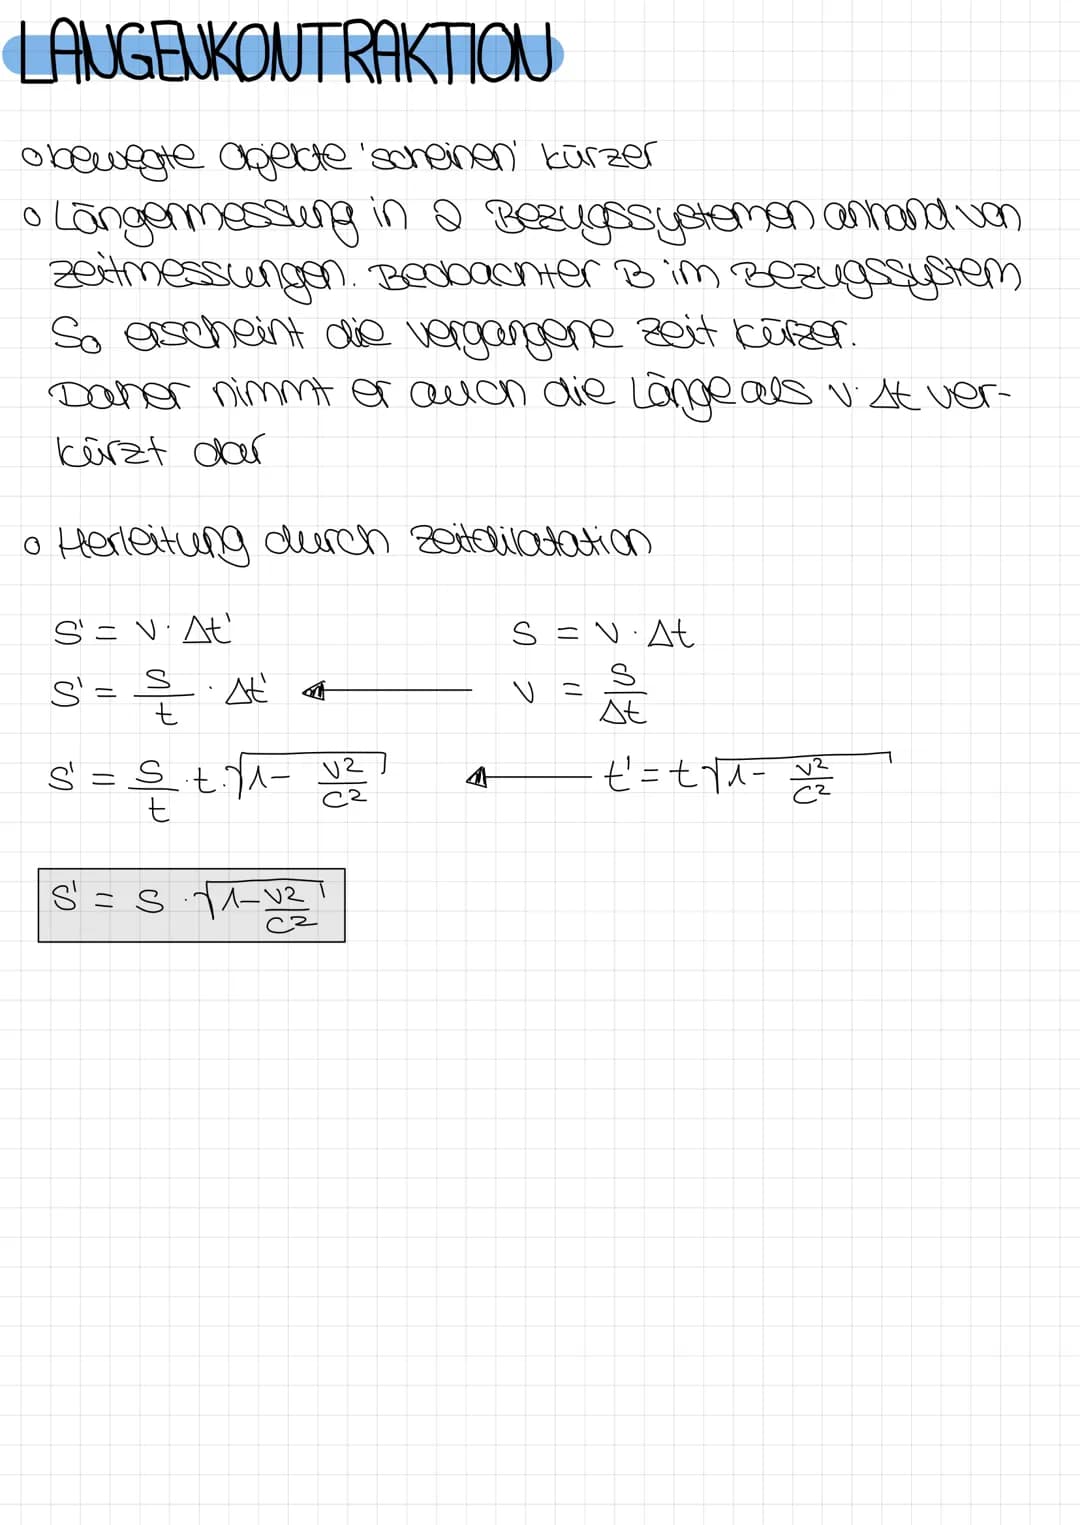 LÄNGENKONTRAKTION
o bewegte Objekte 'scheinen' kürzer
o Längenmessung in 2 Bezugssystemen anhand von
Zeitmessungen. Beobachter B im Bezugssystem
So erscheint die vergangene Zeit kürzer.
Daher nimmt er auch die Länge als v·Δt ver-
kürzt dar
o Herleitung durch Zeitdilatation
S' = v·Δt' S = v·Δt
S' = S/t · Δt' ← v = S/Δt
S' = S/t · t·√(1- v²/c²) ← t' = t√(1- v²/c²)
S' = S·√(1-v²/c²)